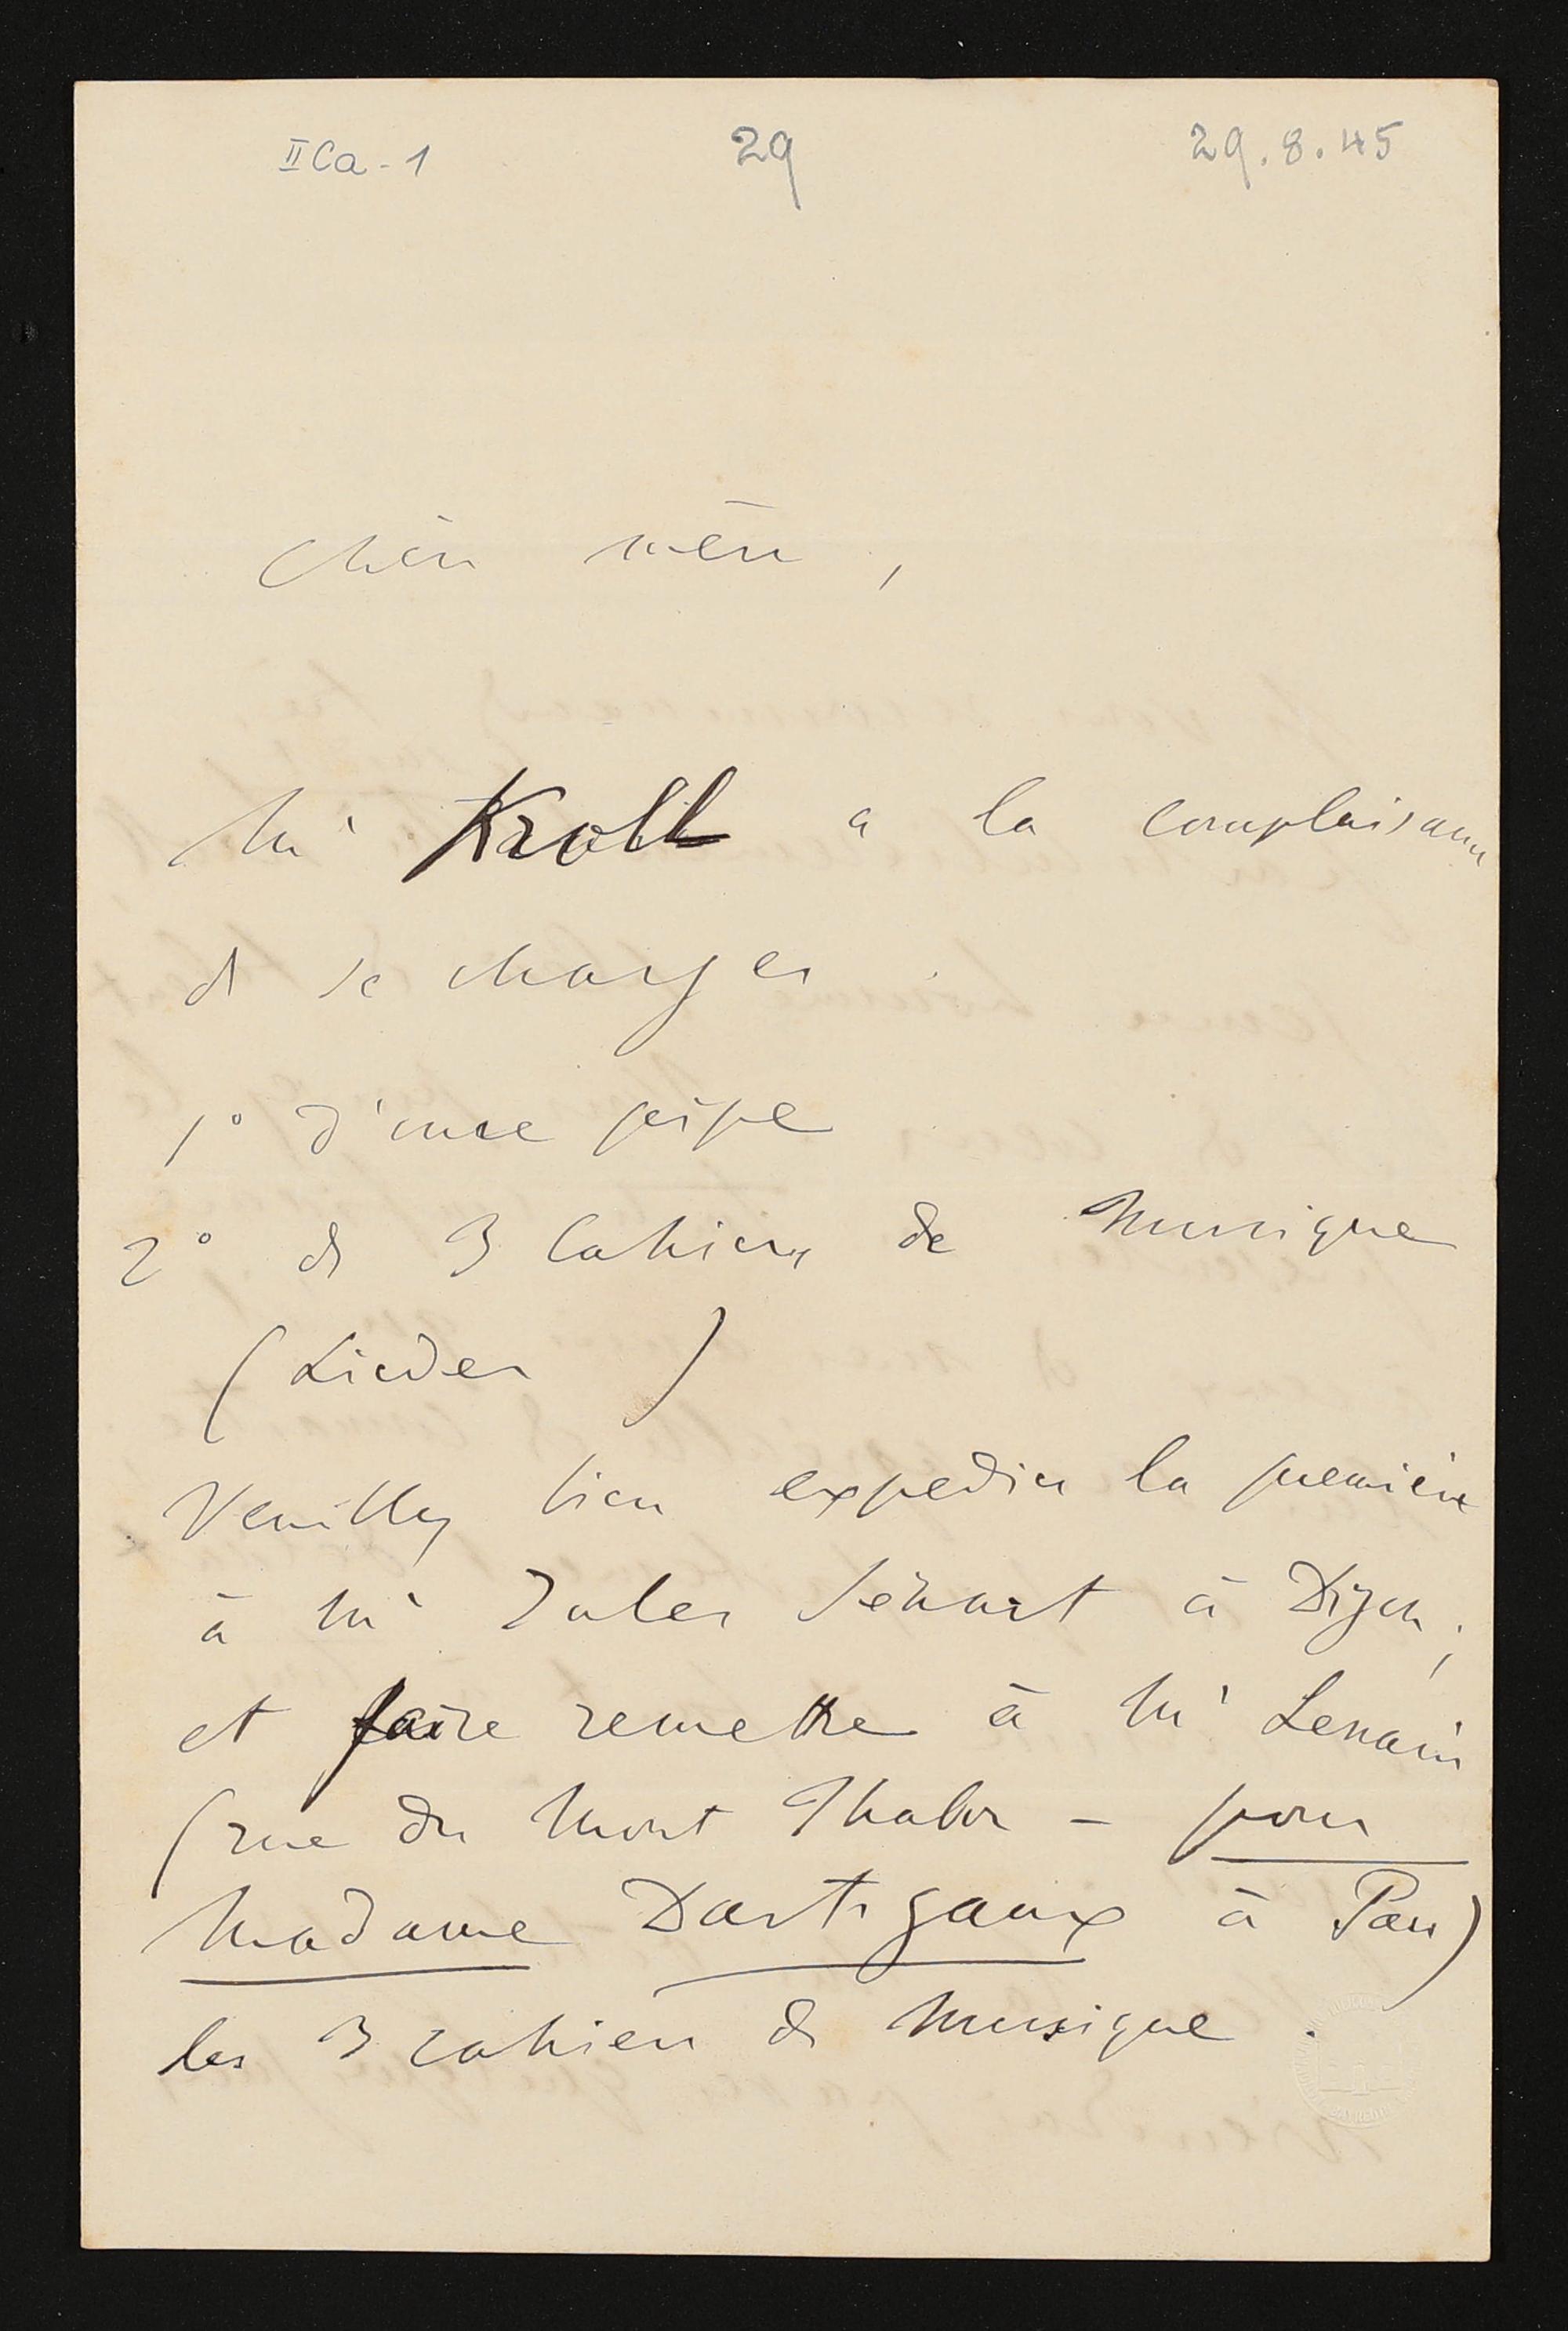 II Ca - 1 29 29.8.45
Chère mère,
Mr Kroll a la complaisance
de se charger
1° d'une pipe
2° de 3 Cahiers de Musique
(Lieder)
Veuillez bien expedier la première
à Mr Jules Sénart à Dijon;
et faire remettre à Mr Lenain
(rue du Mont Thabor - pour
Madame Dartigaux à Pau)
les 3 cahiers de Musique.